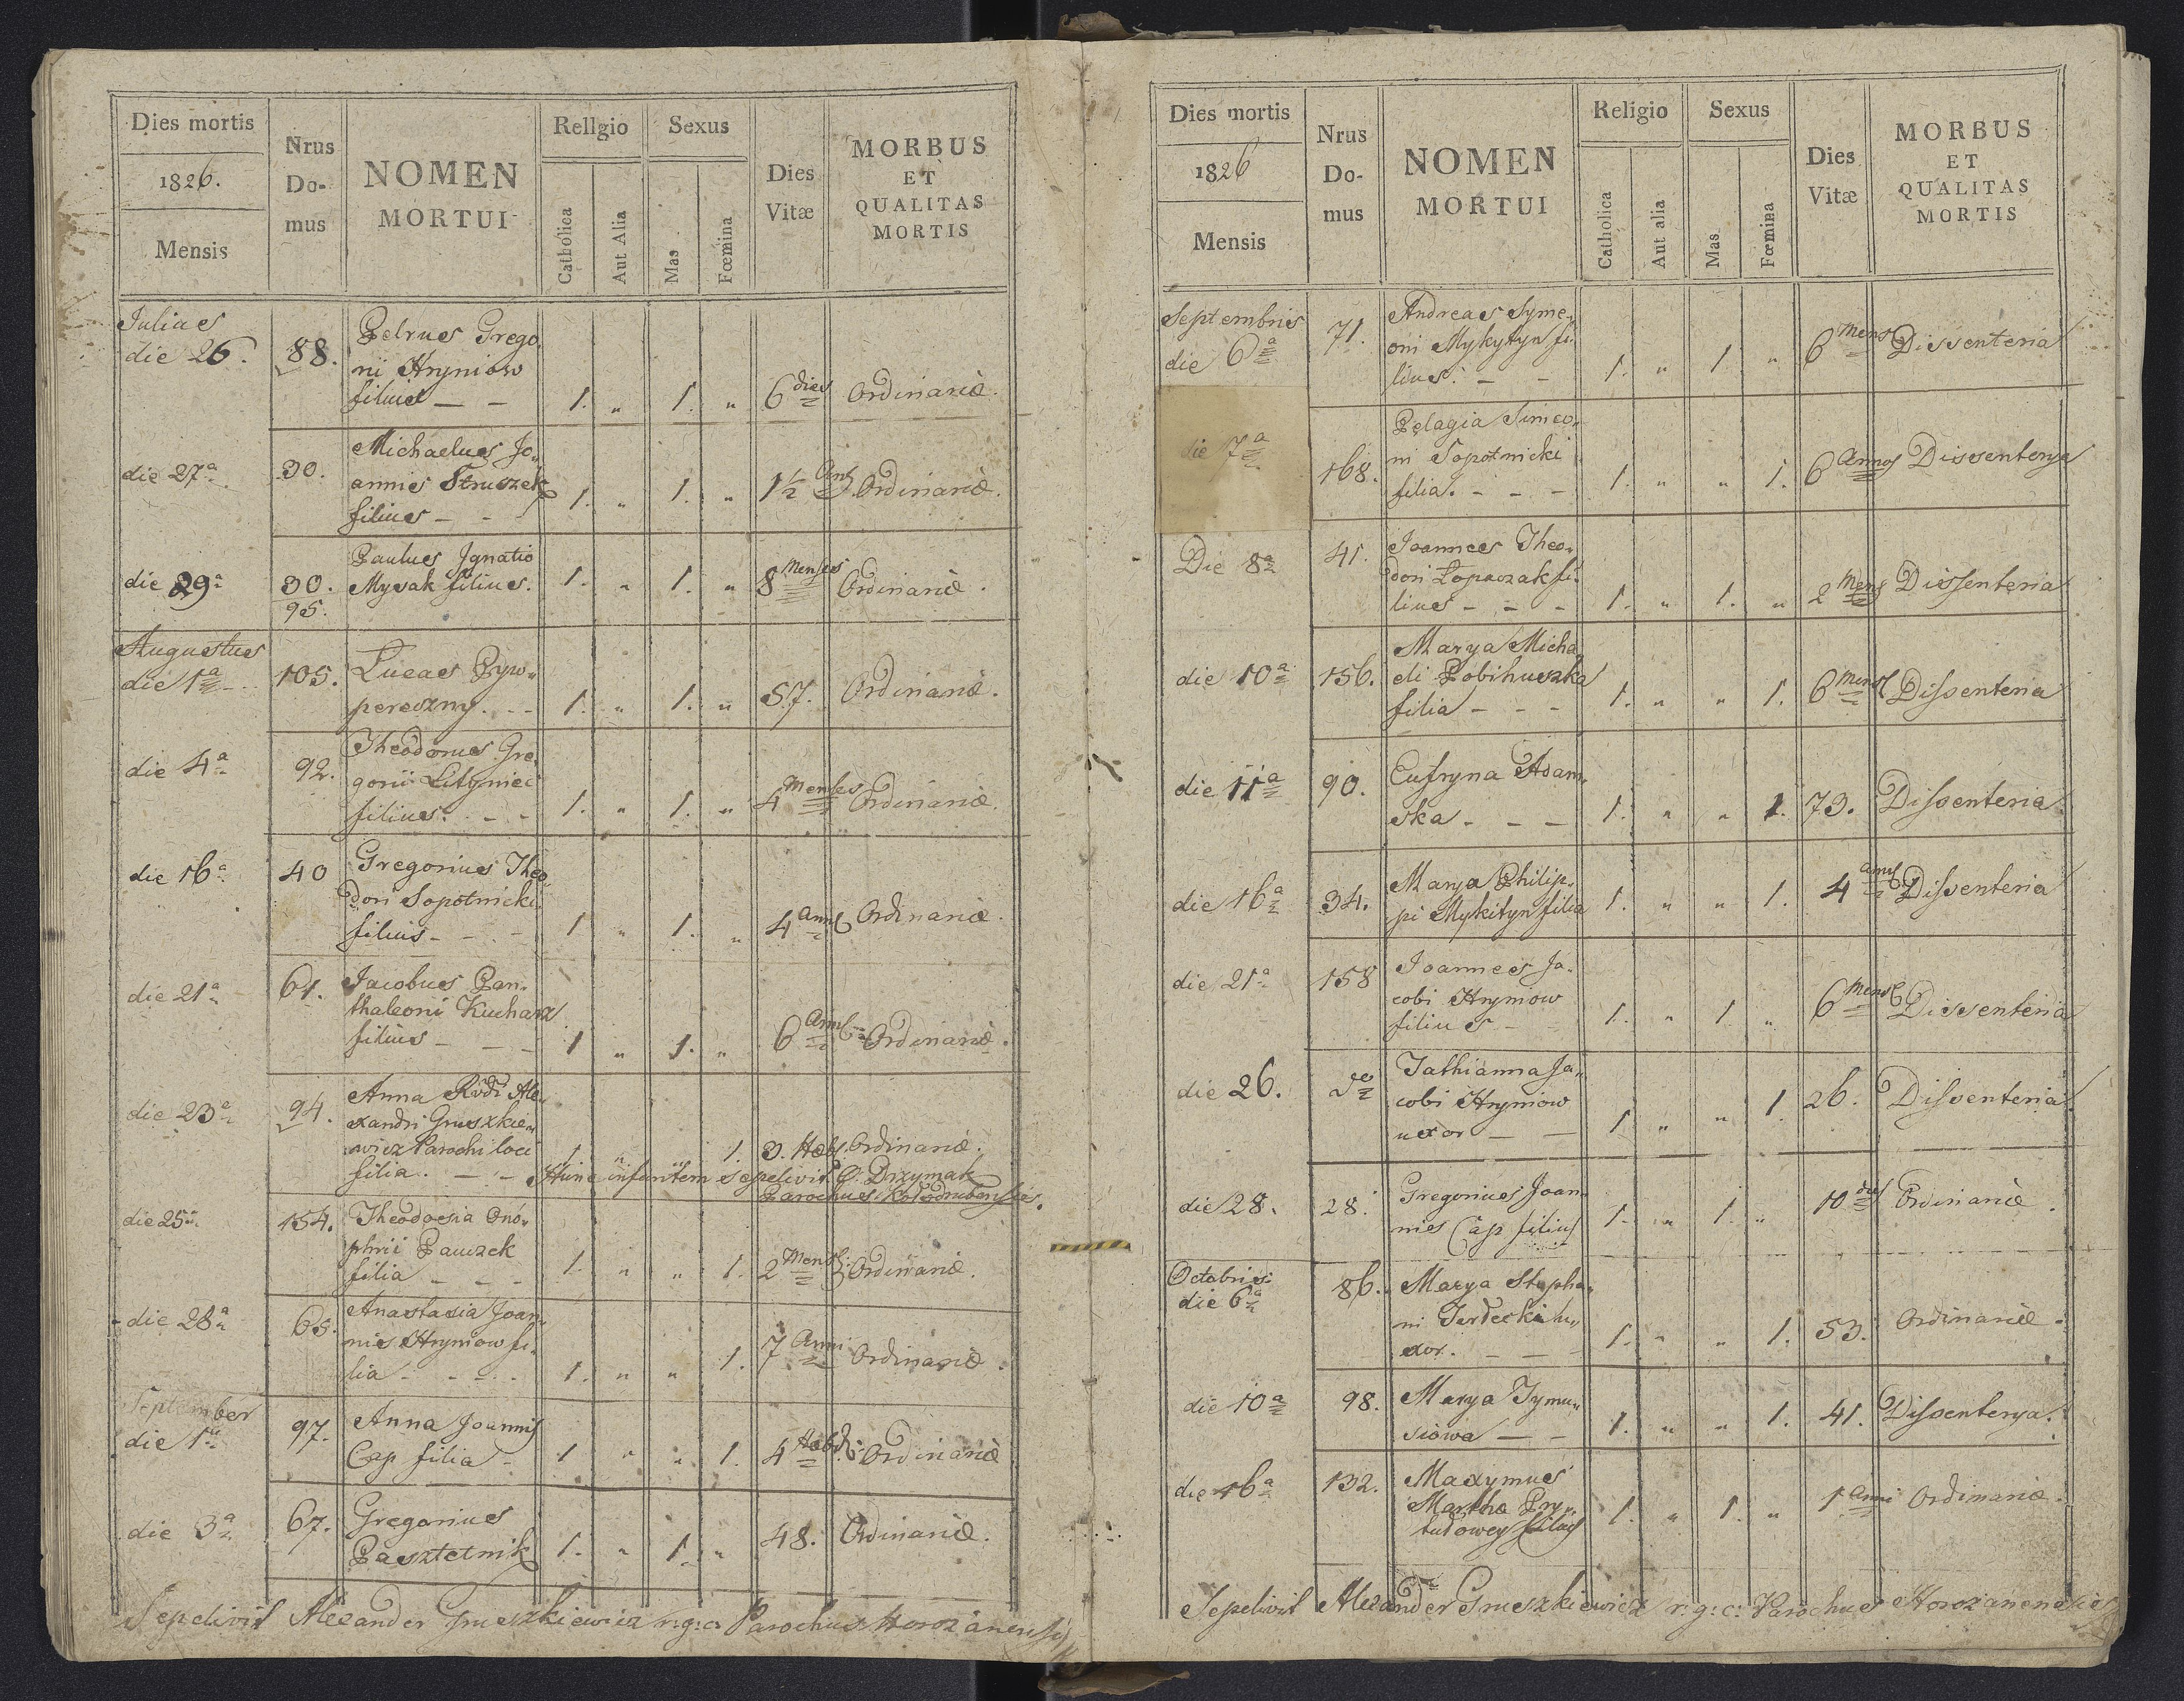 Dies mortis
1826.
Mensis
Nrus
Do-
mus
NOMEN
MORTUI
Rellgio
Catholica
Aut Alia
Sexus
Mas
Fœmina
Dies
Vitæ
MORBUS
ET
QUALITAS
MORTIS
Julius
die 26. 88. Petrus Grego„
rii Hryniow
filius — — 1. „ 1. „ 6 dies Ordinariè.
die 27a 30. Michaelus Jo„
annis Struszek
filius — - 1. „ 1. „ 1½ Ans Ordinariè.
die 29a 30. Paulus Ignatio
95. Mysak filius. 1. „ 1. „ 8 Menses Ordinariè.
Augustus
die 1a 105. Lucas Pywo„
pereszny. - - 1. „ 1. „ 57. Ordinariè.
die 4a 92. Theodorus Gre„
gorii Lityniec
filius. - - 1. „ 1. „ 4 Menses Ordinariè.
die 16a 40 Gregorius Theo„
dori Sopotnicki
filius - - - 1 „ 1. „ 4 Ans Ordinariè.
die 21a 61. Jacobus Pan„
thaleoni Kucharz
filius - — - 1 „ 1. „ 6 Ans Ordinariè.
die 23a 94. Anna Rvdi Ale„
xandri Gruszkie„
wicz Parochi loci 1. „ „ 1. 3. Hebd. Ordinariè.
filia. — - Hunc infantem sepelivit Drzymak
Parochus Kołodrubensis.
die 25a 154. Theodosia Ono„
phrii Pauczek
filia — - - 1. „ „ 1. 2 Mens: Ordinariè.
die 28a 65. Anastasia Joan„
nis Hryniow fi„
lia - - - 1. „ „ 1. 7 Anni Ordinariè.
September
die 1a 97. Anna Joannis
Cap filia - 1 „ „ 1. 4 Hebd: Ordinariè
die 3a 67. Gregorius
Pasztetnik 1. „ 1. „ 48. Ordinariè.
Sepelivit Alexander Gruszkiewicz r:g:c: Parochus Horożanensis
Dies mortis
1826
Mensis
Nrus
Do-
mus
NOMEN
MORTUI
Religio
Catholica
Aut alia
Sexus
Mas
Fœmina
Dies
Vitæ
MORBUS
ET
QUALITAS
MORTIS
Septembris
die 6a 71. Andreas Syme„
oni Mykytyn fi„
lius. — - 1. „ 1 „ 6 Mens Dissenteria
die 7a 168. Pelagia Simeo„
ni Sopotnicki
filia. - - - 1. „ „ 1. 6 Annos Dissenterya
Die 8a 41. Joannes Theo„
dori Łopaczak fi„
lius - - - 1. „ 1. „ 2 Mens Dissenteria
die 10a 156. Marya Micha„
eli Pobihuszka
filia - - - 1. „ „ 1. 6 Mens Dissenteria
die 11a 90. Eufryna Adam„
ska - — - 1. „ „ 1. 73. Dissenteria
die 16a 34. Marya Philip„
pi Mykityn filia 1. „ „ 1. 4 Ans Dissenteria
die 21a 158 Joannes Ja„
cobi Hryniow
filius - 1. „ 1 „ 6 Mens Dissenteria
die 26. do Tathianna Ja„
cobi Hryniow
uxor — — 1 „ „ 1. 26. Dissenteria
die 28. 28. Gregorius Joan„
nis Cap filius 1. „ 1. „ 10 dies Ordinariè.
Octobris:
die 6a 86. Marya Stepha„
ni Terlecki u„
xor. - - - 1. „ „ 1. 53. Ordinariè.
die 10a 98. Marya Tymu„
siowa — - 1. „ „ 1. 41. Dissenterya.
die 16a 132. Maxymus
Martha Pry„
tudowey filius 1. „ 1. „ 1 Anni Ordinariè.
Sepelivit Alexander Gruszkiewicz r:g:c: Parochus Horożanensis